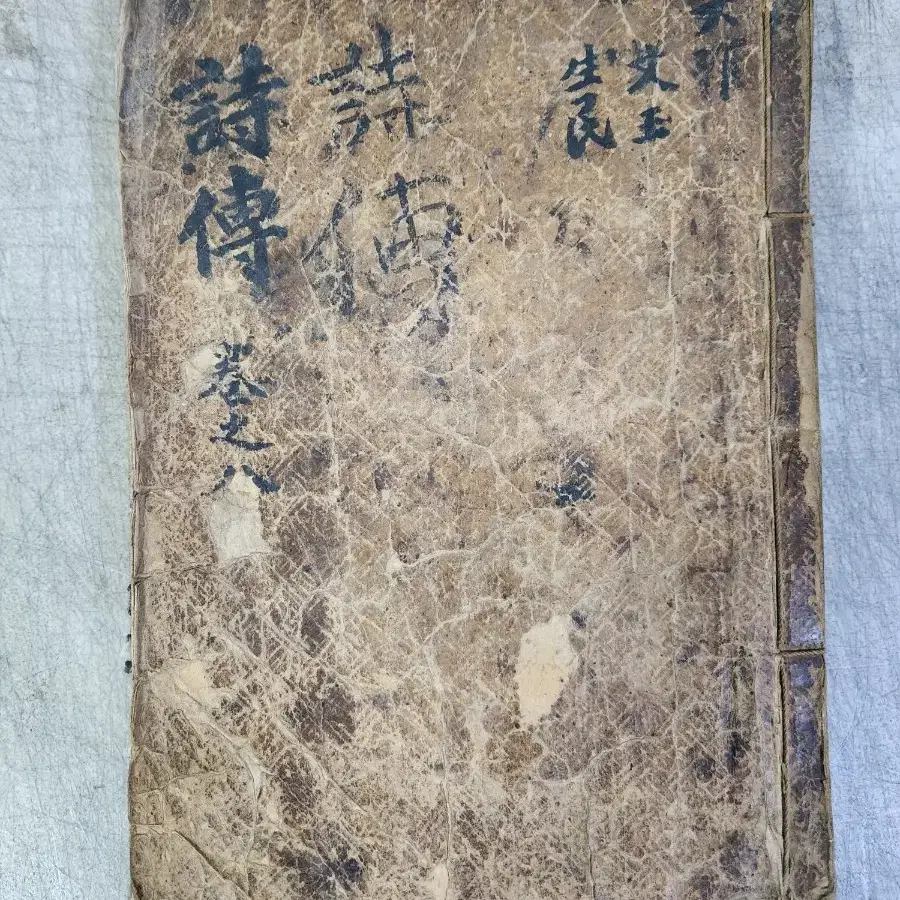 大雅
文王
生民
詩傳
詩傳 卷之八